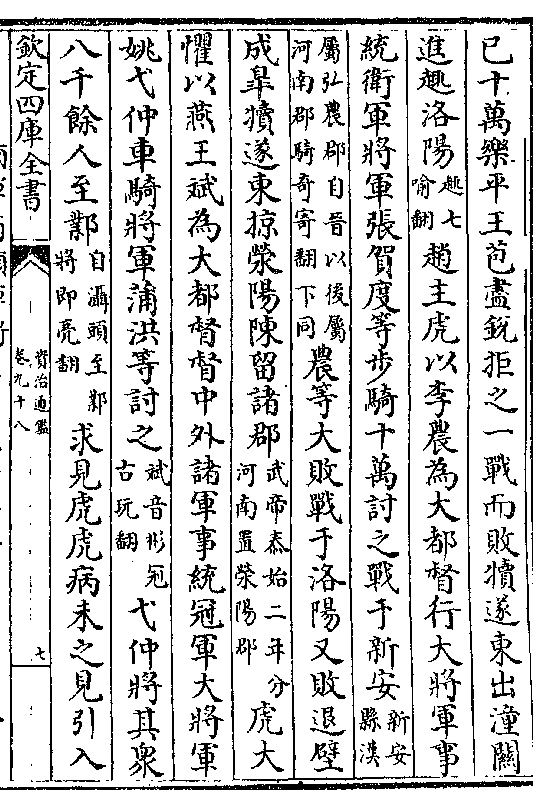 已十萬樂平王苞盡銳拒之一戰而敗犢遂東出潼關
進趣洛陽趣七喻翻趙主虎以李農為大都督行大將軍事
統衛軍將軍張賀度等步騎十萬討之戰于新安新安縣漢
屬弘農郡自晉以後屬河南郡騎奇寄翻下同農等大敗戰于洛陽又敗退壁
成臯犢遂東掠滎陽陳留諸郡武帝泰始二年分河南置滎陽郡虎大
懼以燕王斌為大都督督中外諸軍事統冠軍大將軍
姚弋仲車騎將軍蒲洪等討之斌音彬冠古玩翻弋仲將其衆
八千餘人至鄴自灄頭至鄴將即亮翻求見虎虎病未之見引入
欽定四庫全書
資治通鑑
卷九十八
七